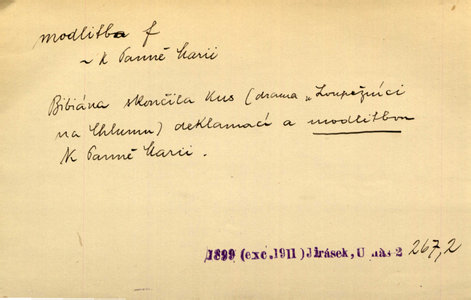 modlitba f
~ K Panně Marii
Bibiána skončila kus (drama „Loupežníci
na Chlumu) deklamací a modlitbou
K Panně Marii.
1899 (exc.1911) Jirásek, U nás 2 267,2